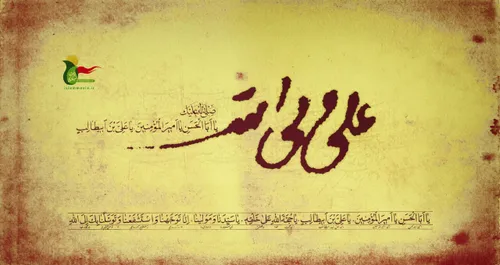 علی ولی الله
صلی الله علیک
یا أبا الحسن یا أمیر المؤمنین یا علی بن أبیطالب
یا أبا الحسن یا أمیر المؤمنین، یا علی بن أبیطالب، یا حجة الله علی خلقه، یا سیدنا و مولینا، إنا توجهنا و استشفعنا و توسلنا بک إلی الله